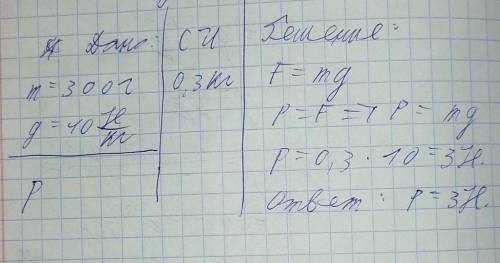 Дано:
m = 300г
g = 10 Н/кг
P
СИ
0,3 кг
Решение:
F = mg
P = F => P = mg
P = 0,3 · 10 = 3Н.
Ответ: P = 3Н.